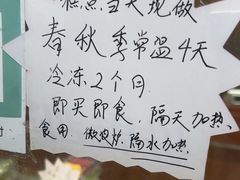 糕点当天现做
春秋季常温4天
冷冻2个月
即买即食，隔天加热
食用．微波炉，隔水加热